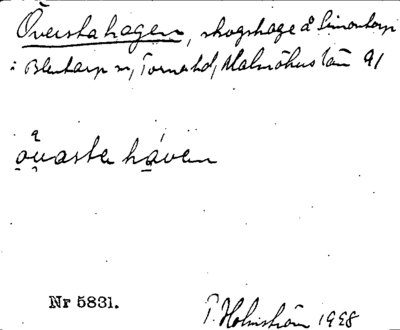 Översta hagen, skogshage å Simontorp
i Blentarp sn, Torna hd, Malmöhus län 91
övastæ haven
Nr 5831.
P. Holmström 1998